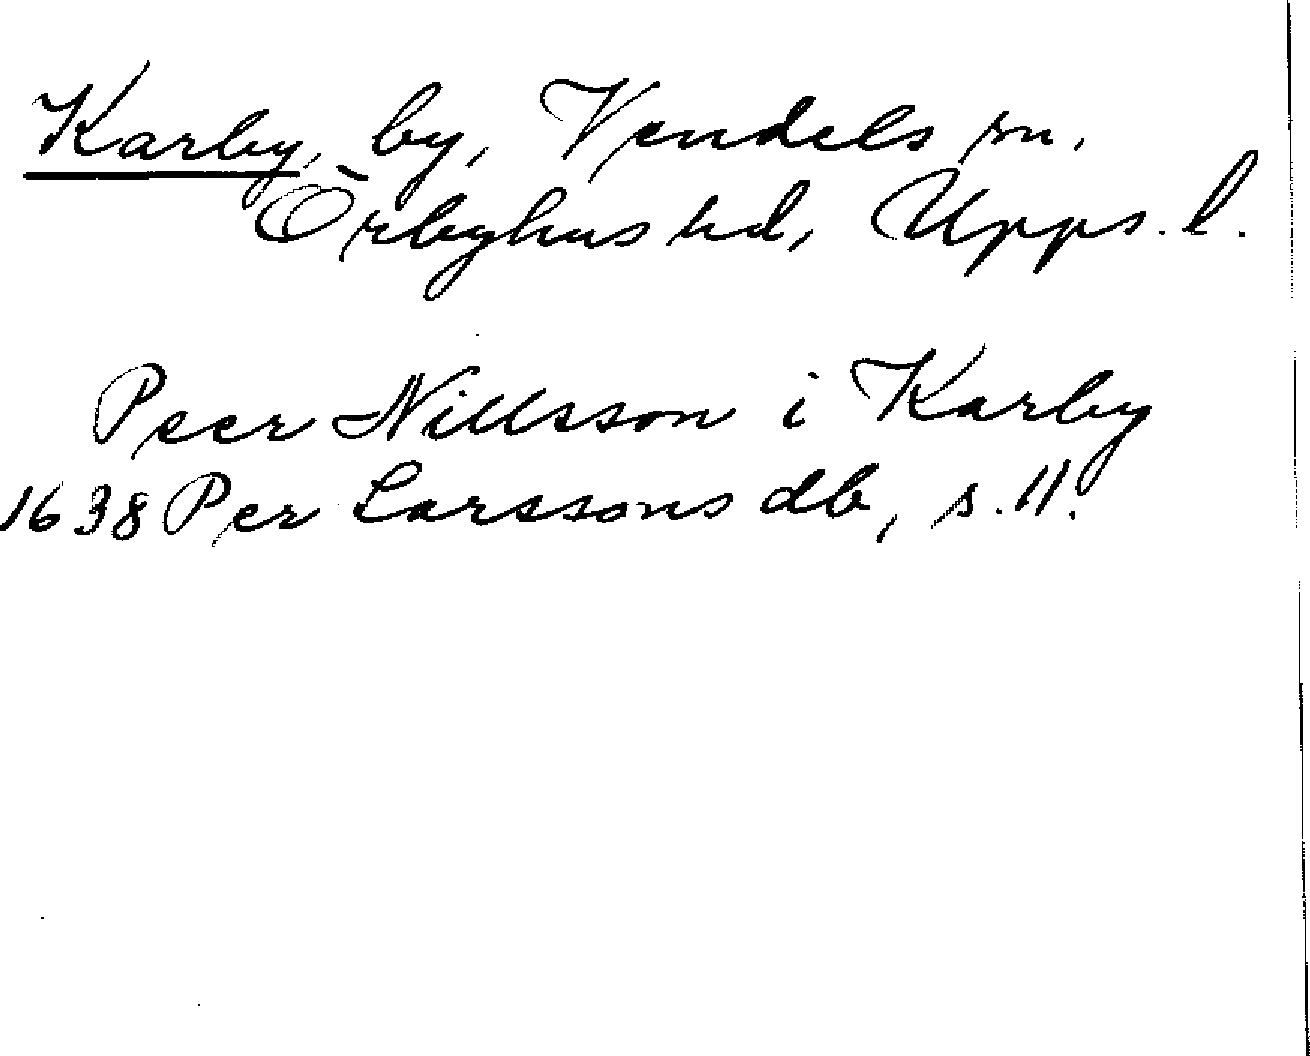 Karby, by, Vendels sn.
Örbyhus hd, Upps. l.
Peer Nillsson i Karby
1638 Per Larssons db, s. 11.